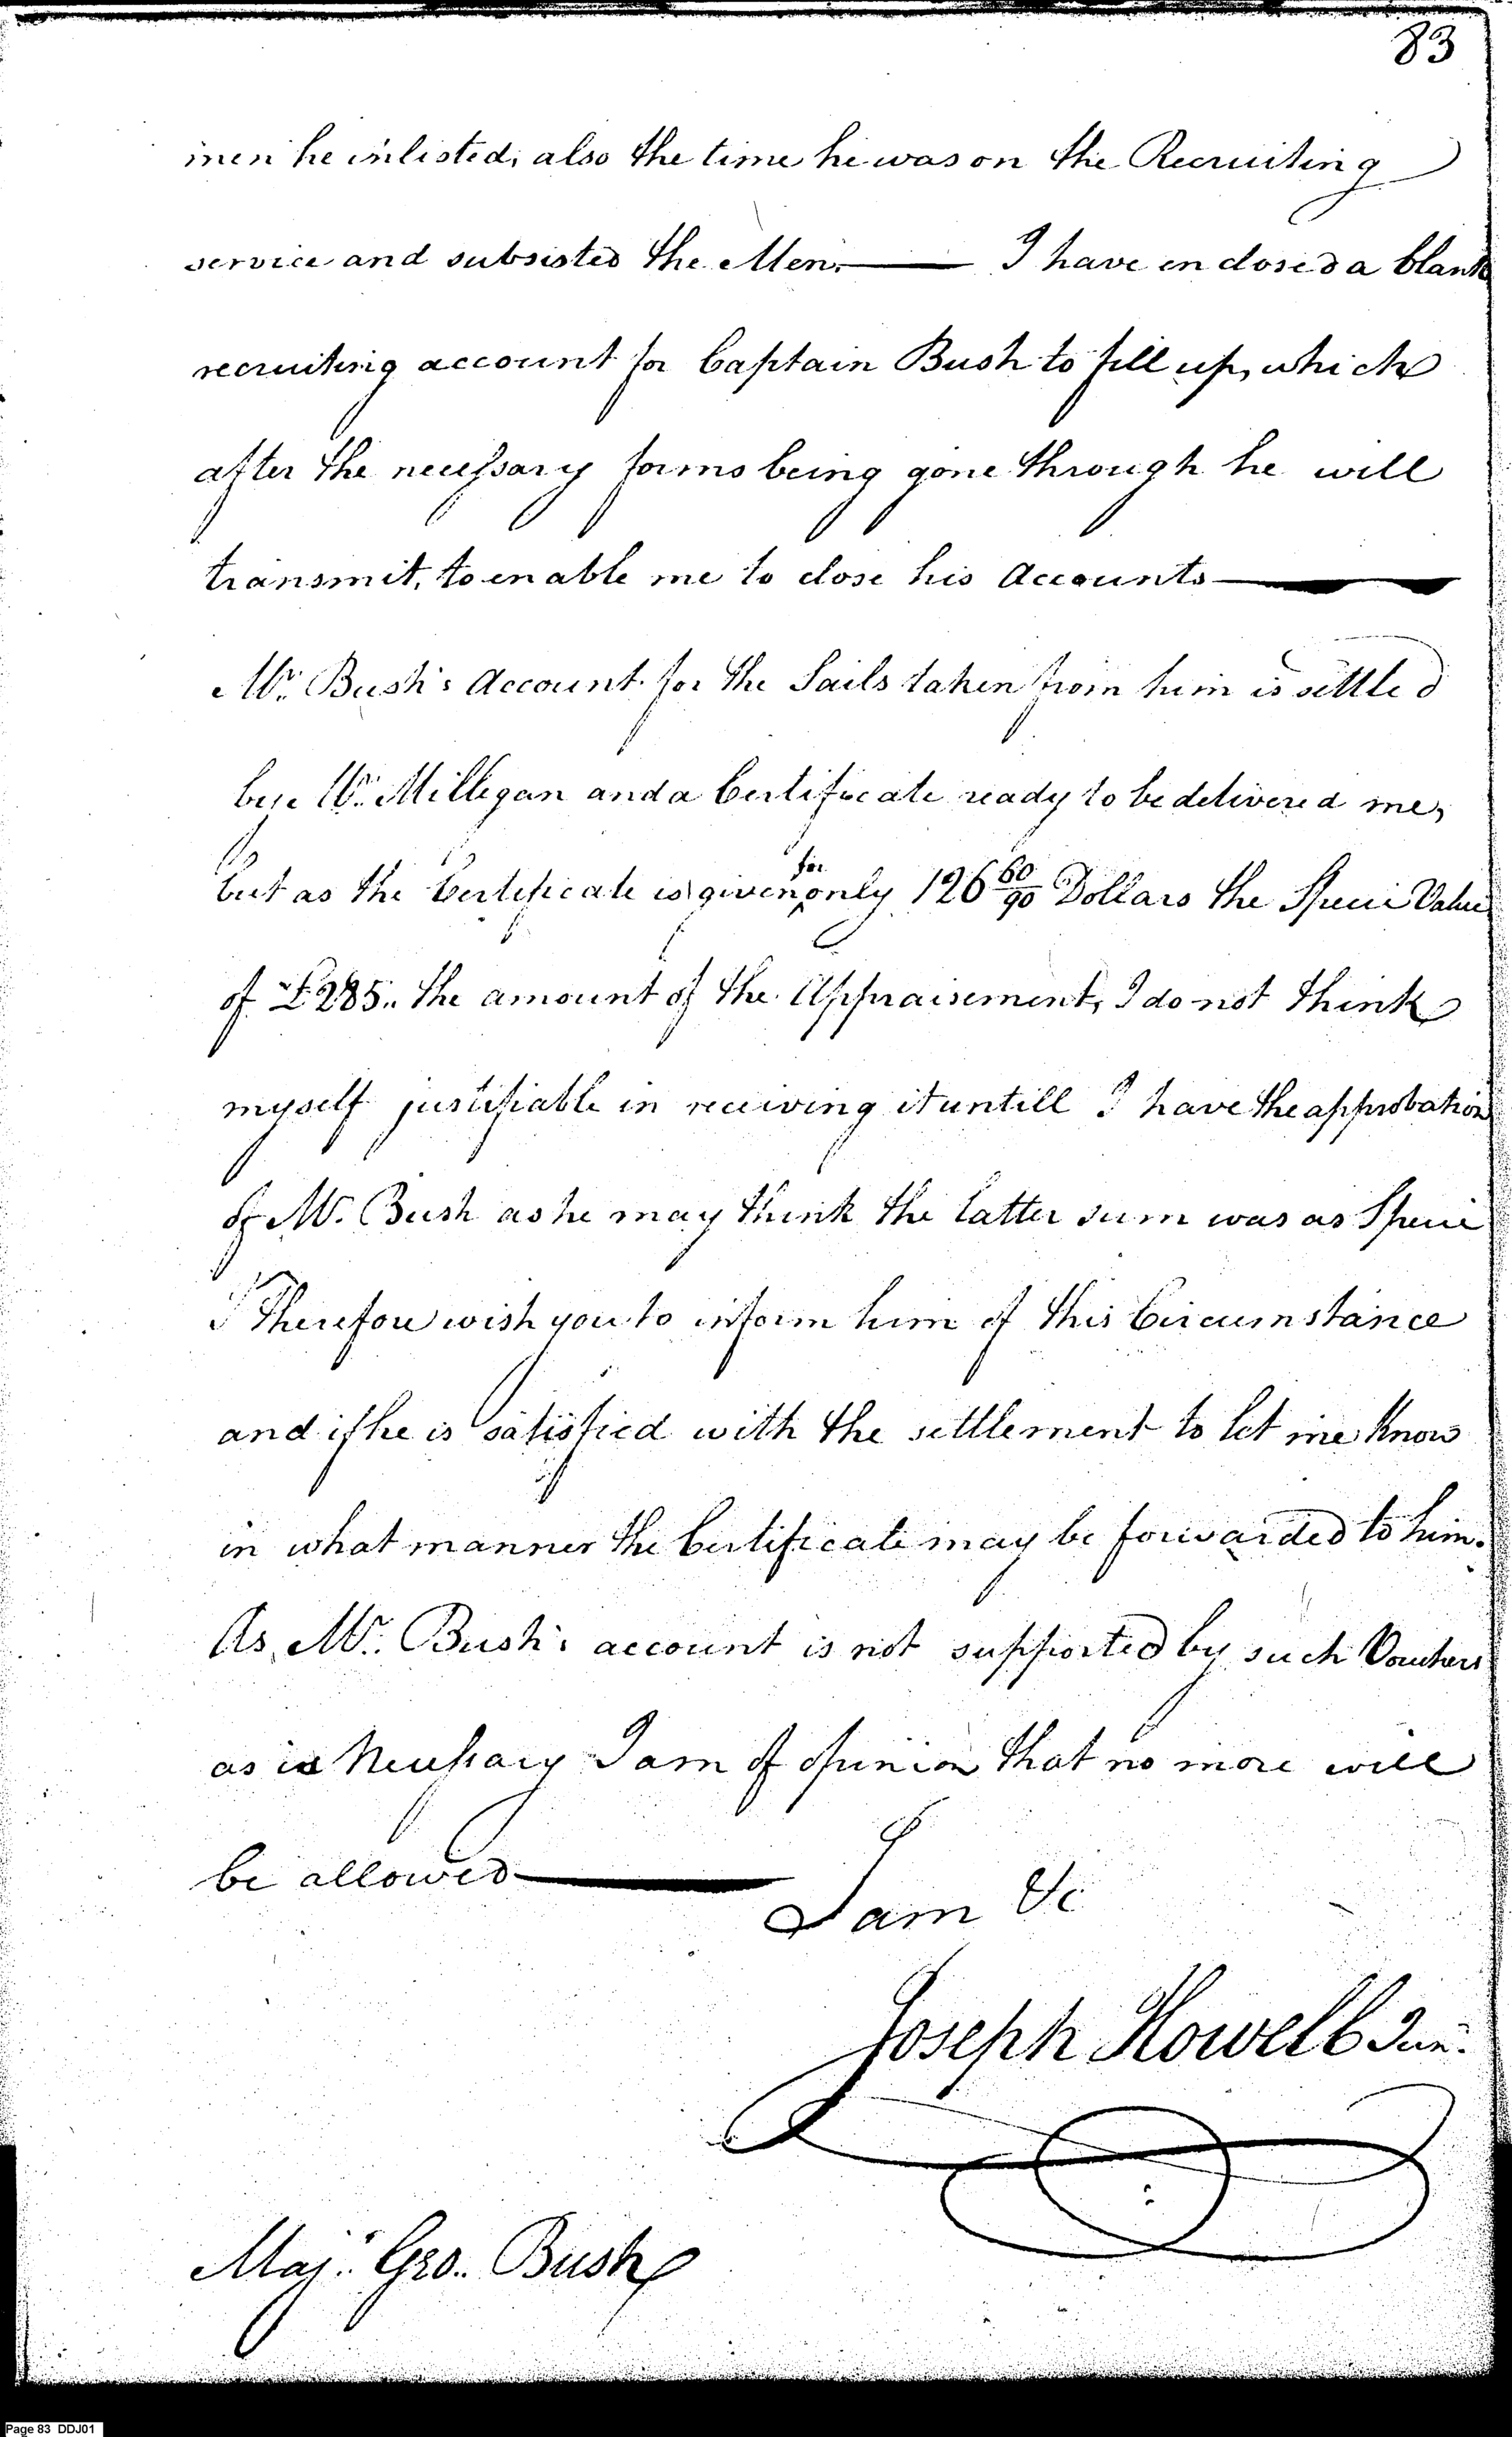 83
men he inlisted, also the time he was on the Recruiting
service and subsisted the Men. — I have enclosed a blank
recruiting account for Captain Bush to fill up, which
after the necessary forms being gone through he will
transmit, to enable me to close his Accounts —
Mr. Bush's Account for the Sails taken from him is settled
by Mr. Milligan and a Certificate ready to be delivered me,
but as the Certificate is given for only 126 60/90 Dollars the Specie Value
of £285.. the amount of the Appraisement, I do not think
myself justifiable in receiving it untill I have the approbation
of Mr. Bush as he may think the latter sum was as Specie
I Therefore wish you to inform him of this Circumstance
and if he is satisfied with the settlement to let me know
in what manner the Certificate may be forwarded to him.
As Mr. Bush's account is not supported by such Vouchers
as is Necessary I am of opinion that no more will
be allowed —
I am &c
Joseph Howell Junr.
Majr. Geo. Bush
Page 83 DDJ01